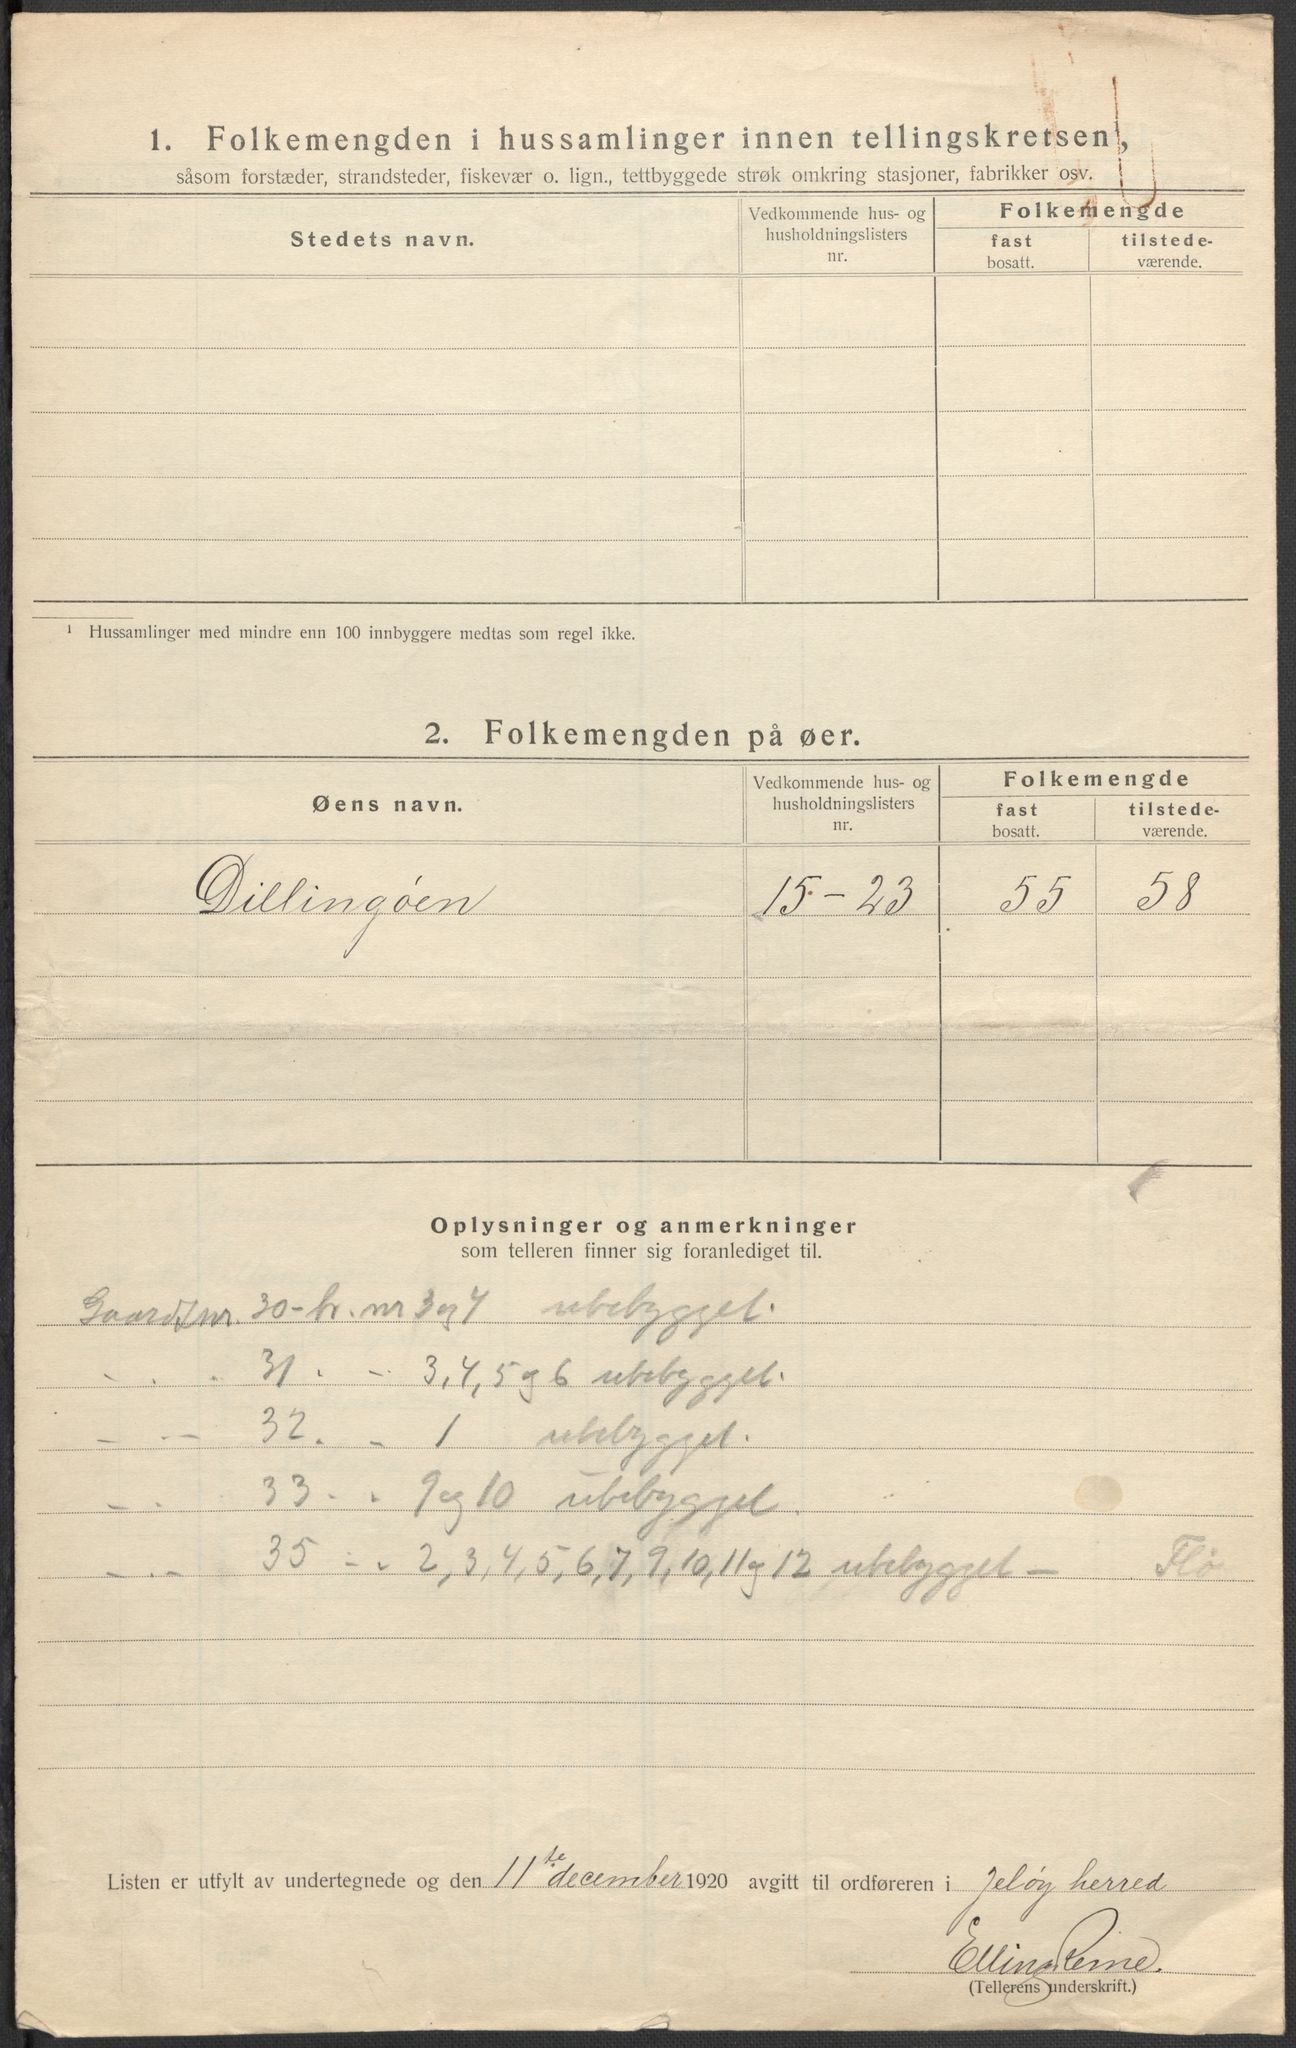 1. Folkemengden i hussamlinger innen tellingskretsen¹,
såsom forstæder, strandsteder, fiskevær o. lign., tettbyggede strøk omkring stasjoner, fabrikker osv.
Stedets navn.
Vedkommende hus- og husholdningslisters nr.
Folkemengde
fast bosatt.
tilstede-værende.
¹ Hussamlinger med mindre enn 100 innbyggere medtas som regel ikke.
2. Folkemengden på øer.
Øens navn.
Vedkommende hus- og husholdningslisters nr.
Folkemengde
fast bosatt.
tilstede-værende.
Dillingöen 15 - 23 55 58
Oplysninger og anmerkninger
som telleren finner sig foranlediget til.
Gaards nr. 30 - br. nr 3 og 4 ubebygget.
- . . 31 . - 3, 4, 5 og 6 ubebygget.
- - 32 . - 1 ubebygget.
- . 33 . . 9 og 10 ubebygget.
- . - 35 - . 2, 3, 4, 5, 6, 7, 9, 10, 11 og 12 ubebygget - Flö
Listen er utfylt av undertegnede og den 11te december 1920 avgitt til ordføreren i Jelöy herred
Elling Reine.
(Tellerens underskrift.)